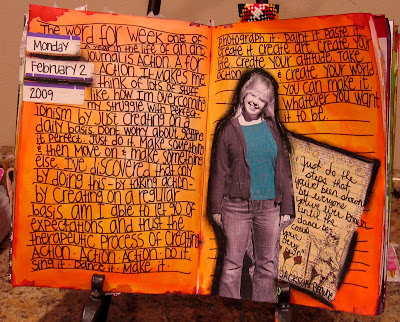 The word for week one of
a year in the life of an art
journal is Action. A for
Action. It makes me
think of lots of stuff
like how I'm overcoming
my struggle with perfect-
ionism by just creating on a
daily basis. Don't worry about getting
it perfect. Just do it. Make something
& then move on & make something
else. I've discovered that only
by doing this - by taking action -
by creating on a regular
basis am I able to let go of
expectations and trust the
therapeutic process of creating.
Action. Action. Action. Do it.
Sing it. Dance it. Make it.
Monday
February 2
2009
Photograph it. Paint it. Paste it.
Create it. Create art. Create your
life. Create your attitude. Take
action & create your world
You can make it
whatever you want
it to be.
Just do the
steps that
you've been shown
by everyone
you've ever known
until the
dance becomes
your
very own
Jackson Browne